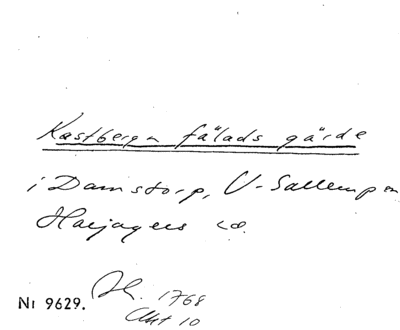 Kastbergn fälads gärde
i Damstorp, V-Sallerup sn
Harjagers
Nr 9629. 1768
Akt 10